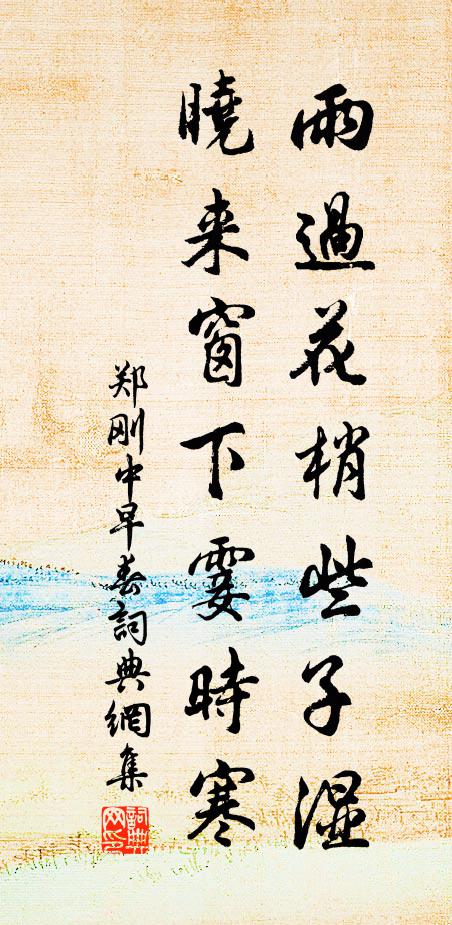 雨過花梢些子湿
曉来窗下霎時寒
郑刚中早春詞典網集
詞典網印